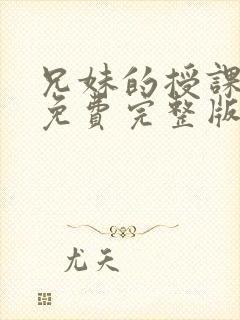 兄妹的授課
免費完整版
尤天